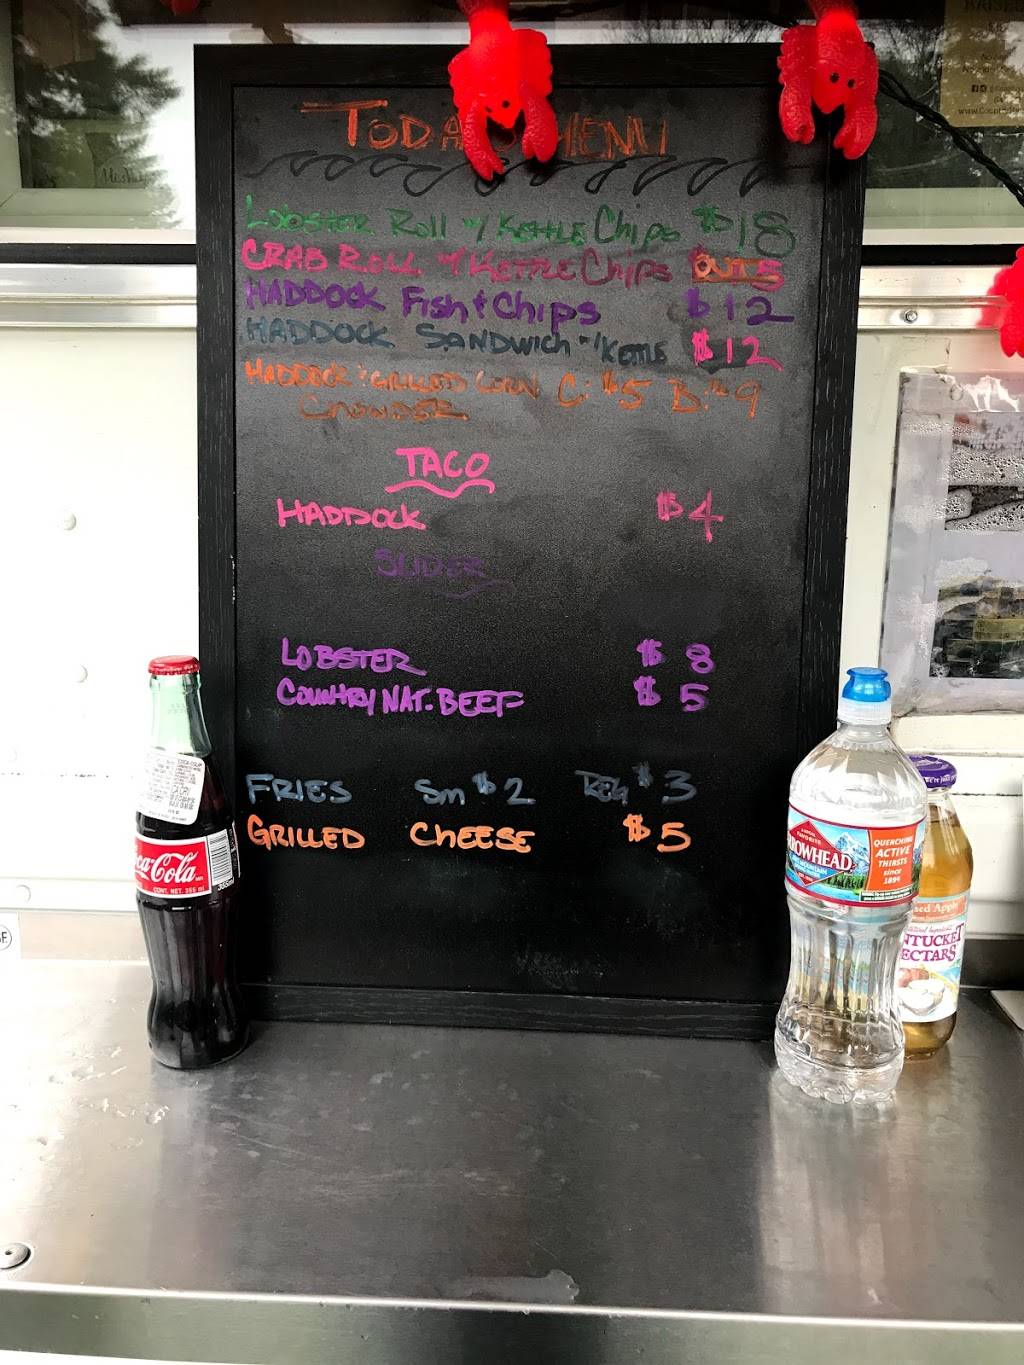 TODAY MENU
LOBSTER Roll w/ KETTLE Chips $18
CRAB ROLL w/ KETTLE Chips OUT
HADDOCK Fish & Chips $12
HADDOCK SANDWICH w/ KETTLE $12
HADDOCK & GRILLED CORN C: $5 B: $9
CHOWDER
TACO
HADDOCK $4
SLIDER
LOBSTER $8
COUNTRY NAT. BEEF $5
FRIES Sm $2 REG $3
GRILLED CHEESE $5
Coca-Cola
CONT. NET. 355 ml
ARROWHEAD
QUENCHING
ACTIVE
THIRSTS
since
1894
NTUCKET
NECTARS